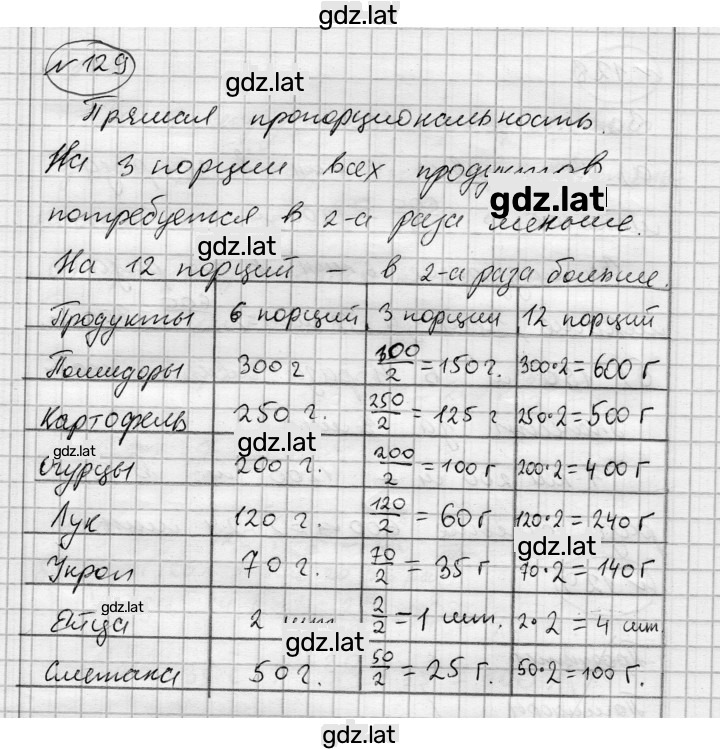 gdz.lat
№ 129
gdz.lat
Прямая пропорциональность.
На 3 порции всех продуктов
gdz.lat
потребуется в 2-а раза меньше.
gdz.lat
На 12 порций – в 2-а раза больше.
Продукты 6 порций 3 порции 12 порций
Помидоры 300 г 300/2 = 150 г. 300·2 = 600 г
Картофель 250 г. 250/2 = 125 г 250·2 = 500 г
gdz.lat
gdz.lat
Огурцы 200 г. 200/2 = 100 г 200·2 = 400 г
Лук 120 г. 120/2 = 60 г 120·2 = 240 г
gdz.lat
Укроп 70 г. 70/2 = 35 г 70·2 = 140 г
gdz.lat
Яйца 2 шт. 2/2 = 1 шт. 2·2 = 4 шт.
gdz.lat
Сметана 50 г. 50/2 = 25 г. 50·2 = 100 г.
gdz.lat